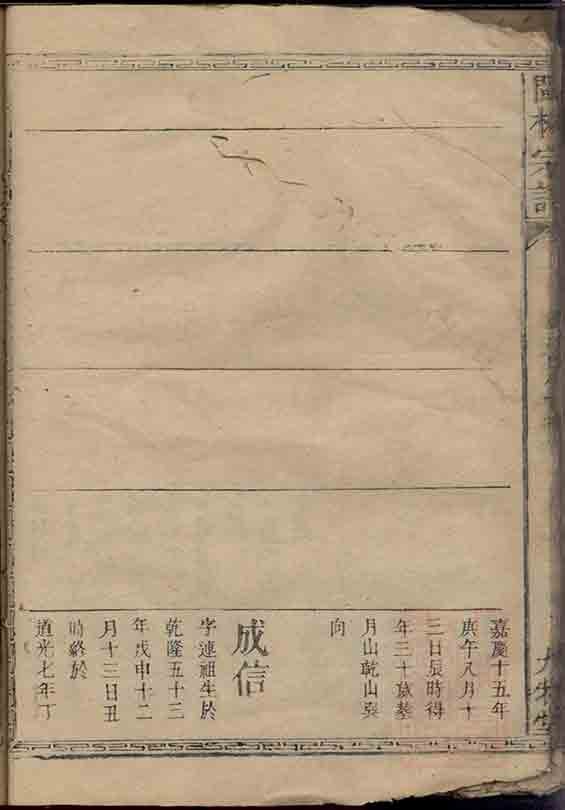 嘉慶十五年
庚午八月十
三日辰時得
年三十歲墓
月山乾山巽
向
成信
字連祖生於
乾隆五十三
年戊申十二
月十三日丑
時終於
道光七年丁